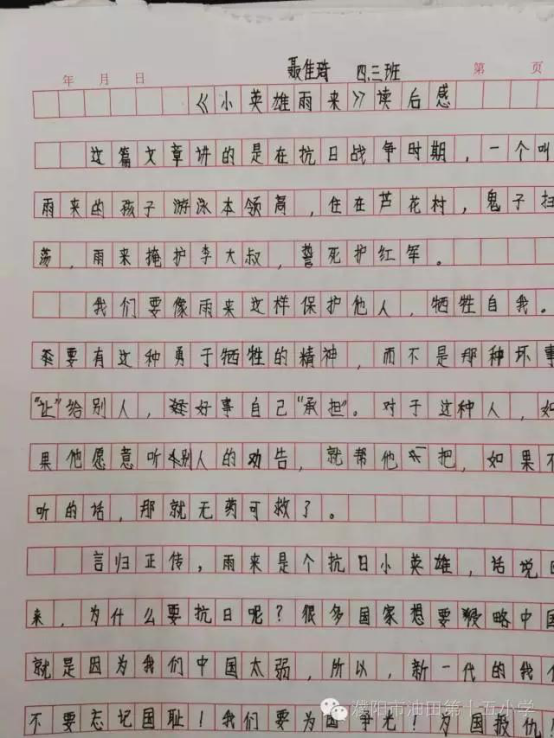 聂佳琦 四.三班
年 月 日 第 页
《小英雄雨来》读后感
这篇文章讲的是在抗日战争时期，一个叫
雨来的孩子游泳本领高，住在芦花村，鬼子扫
荡，雨来掩护李大叔，誓死护红军。
我们要像雨来这样保护他人，牺牲自我。
要有这种勇于牺牲的精神，而不是那种坏事
“让”给别人，好事自己“承担”。对于这种人，如
果他愿意听别人的劝告，就帮他一把，如果不
听的话，那就无药可救了。
言归正传，雨来是个抗日小英雄，话说回
来，为什么要抗日呢？很多国家想要侵略中国
就是因为我们中国太弱，所以，新一代的我们
不要忘记国耻！我们要为国争光！为国报仇
濮阳市油田第十五小学